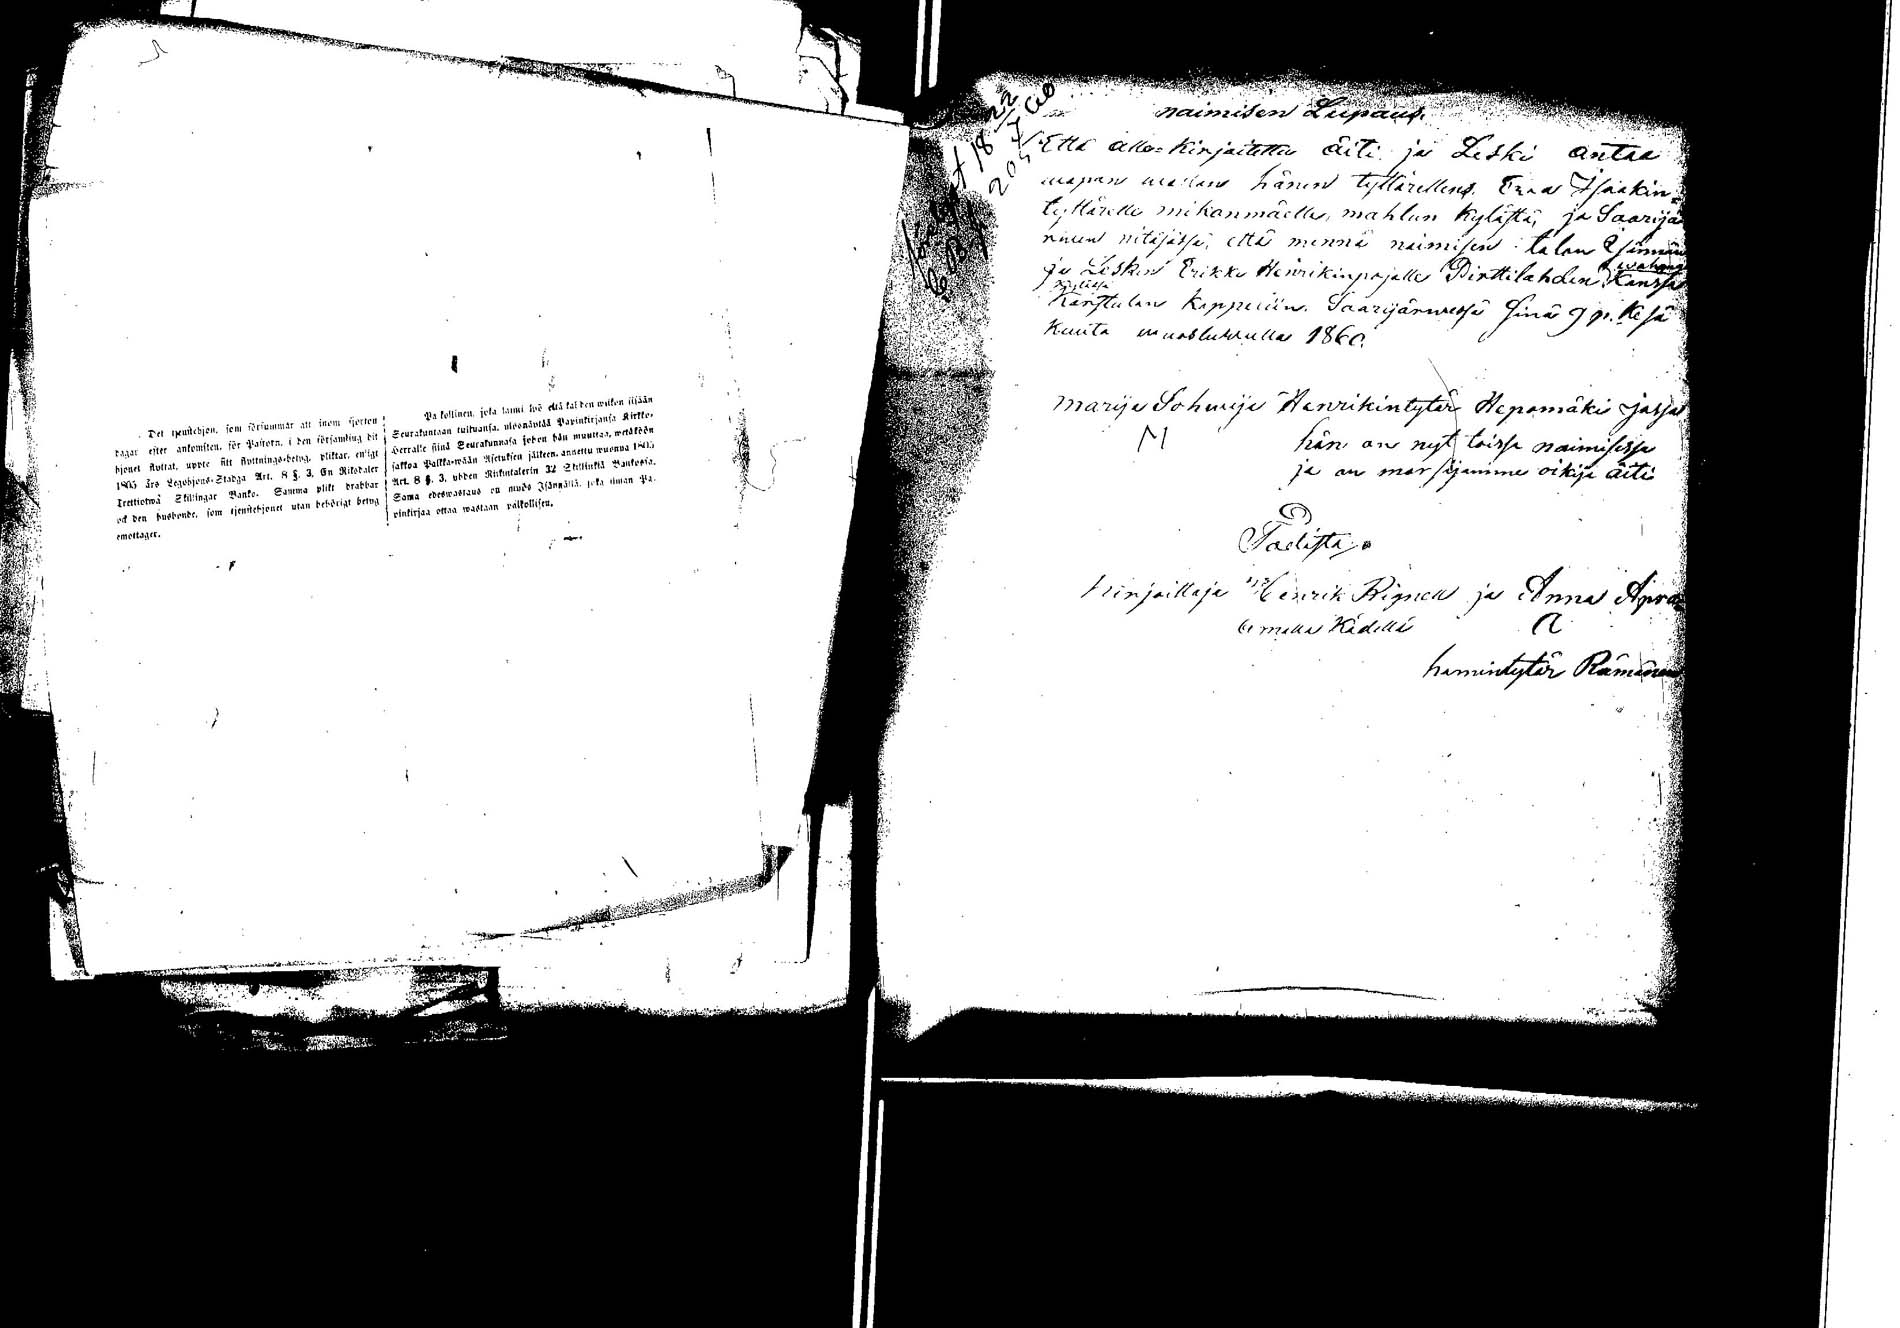 Det tjenstehjon, som försummar att inom fjorton
dagar efter ankomsten, för Pastorn, i den församling dit
hjonet flyttat, uppte sitt flyttnings-betyg, pliktar, enligt
1805 års Legohjons-Stadga Art. 8 §. 3, En Riksdaler
Trettiotwå Skillingar Banko. Samma plikt drabbar
ock den husbonde, som tjenstehjonet utan behörigt betyg
emottager.
Palkollinen, joka laimi lyö että kahden wiikon sisään
Seurakuntaan tultuansa, ulosnäyttää Papinkirjansa Kirkko-
Herralle siinä Seurakunnasa johon hän muuttaa, wetäköön
sakkoa Palkka-wään Asetuksen jälkeen, annettu wuonna 1805
Art. 8 §. 3, yhden Riksitalerin 32 Skillinkiä Bankosa.
Sama edeswastaus on myös Isännällä, joka ilman Pa-
pinkirjaa ottaa wastaan palkollisen.
naimisen Lupaus.
Että alle=kirjoitettu äiti ja Leski antaa
wapan hänen tyttärellens, Isaakin=
tyttärelle mikonmäelle, mahlun kylästä, ja Saarijä
rwen pitäjässä, että mennä naimisen talon Isännän
ja Lesken Erikki Henrikinpojalle Pirttilahden kanssa
kylässä
Karstulan kappeliin. Saarijärwessä sinä 9 p. Kesä
kuuta wuosluwulla 1860.
marija Sohwija Henrikintytär Hepomäki jossa
M
hän on nyt toissa naimisissa
ja on morsijamme oikija äiti
Todista
kirjoittaja Henrik Rignell ja Anna Apra
omalla Kädellä
A
hamintytär Rämänen